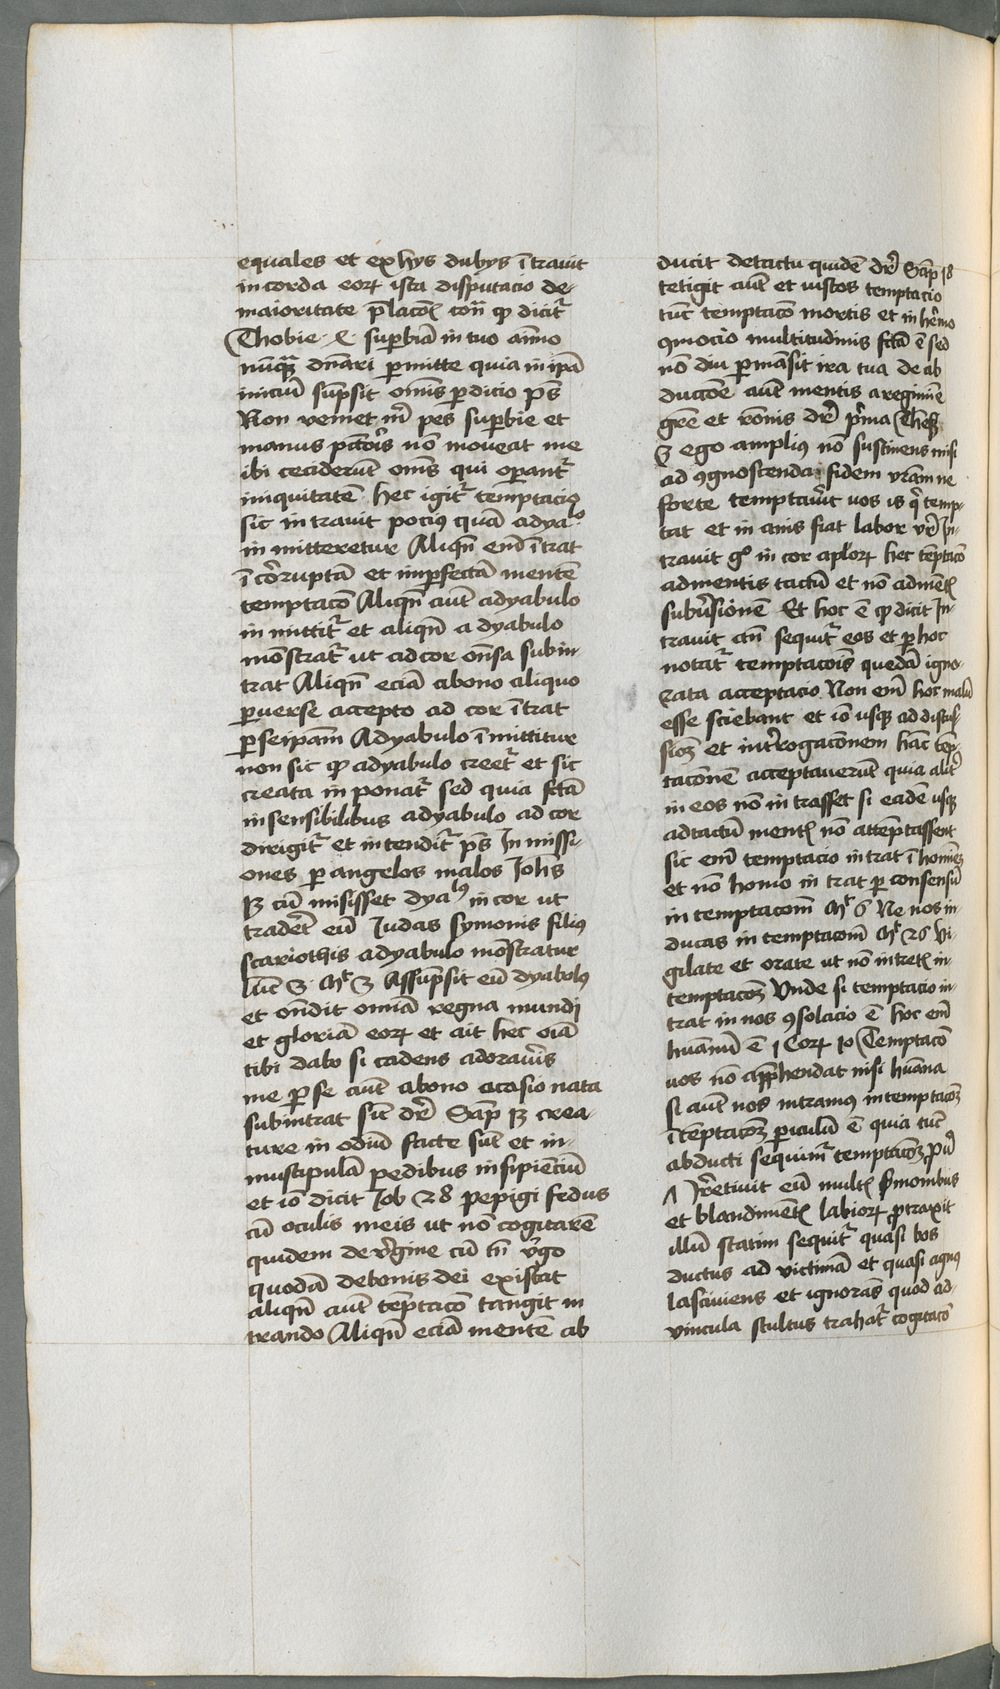 equales et ex hys dubys ītravit
in corda eorꝝ ista disputacio de-
maioritate p̄lacōe cōn̄ qd dicitᷣ
Thobie · superbiā in tuo aīmo
nūqᷓ dn̄ari ꝑmitte quia in ipā
iniciū sūpsit om̄is ꝑdicio pˢ
Non veniet m̄ pes suꝑbie et
manus pctōris nō moveat me
ibi ceciderūt om̄s qui oꝑantᷣ
iniquitatē hec igitᷣ temptacio
sic intravit pociꝰ quā adyalo
in mitteretur Aliqn̄ em̄ ītrat
ī cōrruptā et imꝑfectā mentē
temptacō Aliqn̄ aut̄ adyabulo
in mittitᷣ et aliqn̄ a dyabulo
mōstratᷣ ut ad cor on̄sa subin-
trat Aliqn̄ eciā abono aliquo
ꝑverse accepto ad cor ītrat
ꝑ seipam̄ Adyabulo īmittitur
non sic qd adyabulo creetᷣ et sic
creata in ponatᷣ sed quia fctā
insensibilibus adyabulo ad cor
dirigitᷣ et intenditᷣ pˢ In missi-
ones ꝑ angelos malos Johˢ
13 cū misisset dyalꝰ in cor ut
traderet eū Judas symonis filiꝰ
scariothis adyabulo mōstratur
Luc̄ Mᵗ Assūpsit eū dyabolꝰ
et on̄dit omīa regna mundi
et gloriā eorꝝ et ait hec oīa
tibi dabo si cadens adoravˢis
me Per se aut̄ abono occasio nata
subintrat sic̄ drˢ Sap̄ 13 crea-
ture in odiū facte sut̄ et in-
muscipulā pedibus insipienciū
et io dicit Job 28 pepigi fedus
cū oculis meis ut nō cogitarē
quidem de vˢgine cū tn̄ vˢgo
quodā de bonis dei existat
aliqn̄ aut̄ tēptacō tangit in
trando Aliqn̄ eciā mentē ab
ducit de tactu quidē drˢ Sap̄ 18
tetigit aut̄ et iustos temptacio
tūc temptacō mortis et in hˢmo
ꝯmocio multitudinis fctā ē sed
nō diu ꝑmāsit ira tua de ab
duccōe aut̄ mentis a regimīe
grē et rōnis drˢ pˢma Thesꝭ
3 ego ampliꝰ nō sustinens misi
ad ꝯgnoscendā fidem vr̄am ne
forte temptavˢit vos is qˢ temp-
tat et in anis fiat labor vrˢ In-
travit gº in cor aplorꝝ hec tēptacō
admentis tactū et nō admētꝭ
subvˢsionē Et hoc ē qd dicit In-
travit aut̄ sequitᷣ eos et ꝑ hoc
notatᷣ temptacōis quedā igno-
rata acceptacio Non em̄ hoc malū
esse sciebant et io usqꝫ ad discus-
sioꝫ et intˢrogacōnem hāc tēp-
tacōnē acceptaverūt quia alitˢ
in eos nō in trasset si eadē usqꝫ
adtactū mentꝭ nō attēptassent
sic em̄ temptacio intrat ī homīeꝫ
et nō homo in trat ꝑ consensū
in temptacom̄ Mᵗ 6 Ne nos in-
ducas in temptacom̄ Mᵗ 26 Vi-
gilate et orate ut nō intretꝭ in-
temptacōꝫ Unde si temptacio in-
trat in nos ꝯsolacio ē hoc em̄
hūanū ē 1 Corꝝ 10 Temptacō
vos nō apprehendat nisi hūana
si aut̄ nos intramꝰ intemptacōꝫ
ī tēptacōꝫ ꝑiculū ē quia tūc
abducti sequimᷣ temptacōꝫ
Irˢetivit eū multꝭ sˢmonibus
et blandimētꝭ labiorꝝ ꝓtraxit
illū statim sequitᷣ quasi bos
ductus ad victimā et quasi agnus
lasciviens et ignorās quod ad-
vincula stultus trahatᷣ cogitacō